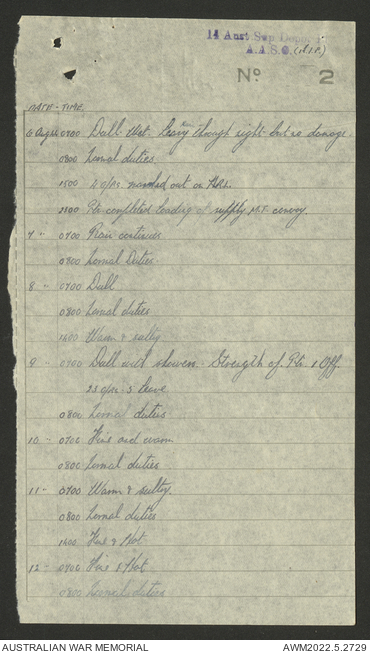 14 Aust Sup Depo
A.A.S.C. (A.I.F)
No 2
DATE - TIME.
6 Aug 0700 Dull. Wet. Heavy though night but no damage.
0800 Normal duties
1500 4 o/rs. marched out on
1800 Ptn completed loading of supply M.T. convoy.
7 " 0700 Rain continues
0800 Normal Duties.
8 " 0700 Dull
0800 Normal duties
1400 Warm & sultry
9 " 0700 Dull with showers. - Strength of Ptn 1 Off.
23 o/rs - 5 leave
0800 Normal duties
10 " 0700 Fine and warm
0800 Normal duties
11 " 0700 Warm & sultry.
0800 Normal duties
1400 Fine & Hot
12 " 0700 Fine & Hot
0800 Normal duties
AUSTRALIAN WAR MEMORIAL
AWM2022.5.2729